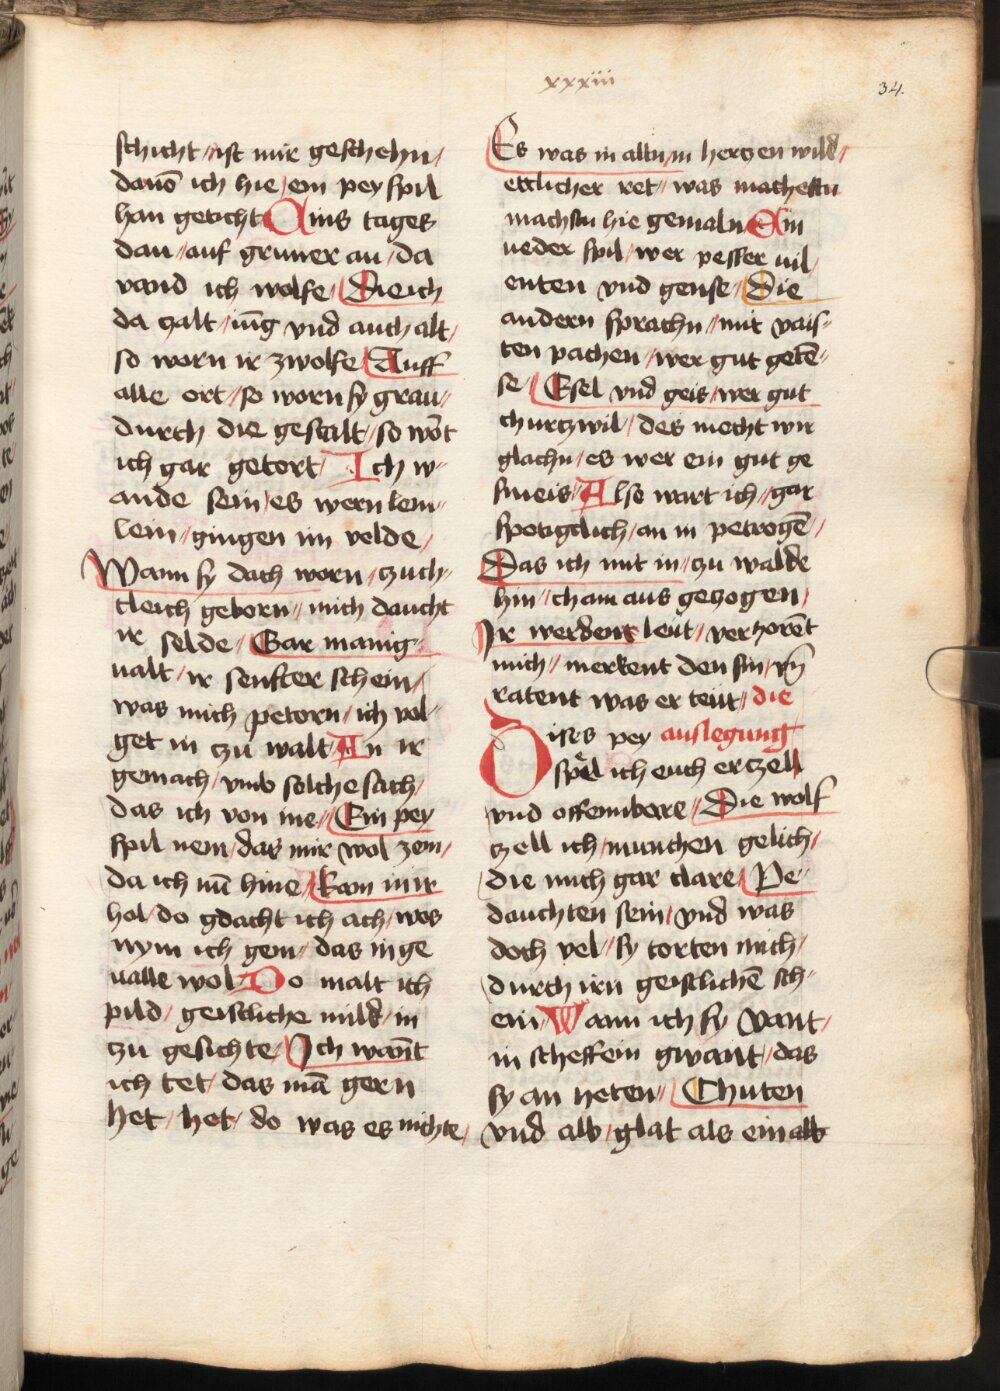 xxxiii
34.
schicht / ist mir geschehn /
dauō ich hie / ein peyspil
han geticht Ains tages
dan / auf gruner au / da
vand ich wolfe / Die ich
da zalt / iūg vnd auch alt /
so worn ir zwolfe / Auff
alle ort / so worn sy grau /
durch die gestalt / so wōt
ich gar getort / Ich w-
ande sein / es wern lem-
lein / gingen im velde /
Wann sy dach worn / czuch-
tleich geborn / mich daucht
ir selde / Gar manig-
ualt / ir senfter schein /
was mich petorn / ich vol-
get in czu walt / An ir
gemach / vmb solche sach /
das ich von ine / Ein pey
spil nem / das mir wol zem /
da ich nū hine / kam mir
hol / do gdacht ich ach / wos
nym ich gem / das in ge
ualle wol Do malt ich
pild / geistliche milt / in
zu gesichte / Ich wānt
ich tet / das mā gern
het / het / do was es nichte /
Es was in alln / in herczen wild /
ettlicher ret / was machestu
machstu hie gemaln Ain
ueder spil / wer pesser uil /
enten vnd gense / Die
andern sprachn / mit vais-
ten pachen / wer gut getē-
se / Esel vnd geis / wer gut
churczwil / des mocht wir
glachn / es wer ein gut ge
smeis / Also wart ich / gar
spotigclich / an in petrogē /
Das ich mit in / czu walde
hin / cham aus geczogen /
Ir werdent leut / verhorēt
mich / merkent den sin / vn̄
ratent was er teut / die
Dises pey auslegung
spel ich euch erczell
vnd offembere / Die wolf
czell ich / munchen gelich /
die mich gar clare / Pe-
dauchten sein / vnd was
doch vel / sy torten mich /
durch irn geistlichē sch-
ein / Wann ich sy vant /
in scheffein gwant / das
sy an heten / Chuten
vnd alb / glat als ein alb